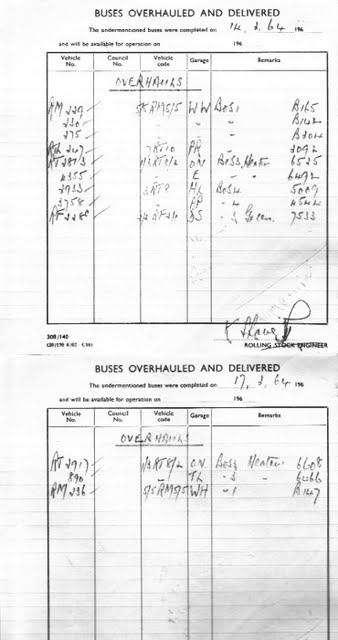 BUSES OVERHAULED AND DELIVERED
The undermentioned buses were completed on 14.2.64 196
and will be available for operation on 196
Vehicle No. Council No. Vehicle code Garage Remarks
OVERHAULS
RM 229 5/5RM5/5 WW BOS1 B165
230 " " " B142
275 " " B204
7RT10 2092
OM BOS3 Heater 6525
4355 " E " 6492
2933 3RT8 HL BOS4 5009
3758 " " 4 4544
2/2 RF2/1 DS 7533
ROLLING STOCK ENGINEER
308/140
BUSES OVERHAULED AND DELIVERED
The undermentioned buses were completed on 17.2.64 196
and will be available for operation on 196
Vehicle No. Council No. Vehicle code Garage Remarks
OVERHAULS
RT 2917 1/3RT8/2 ON BOS3 Heater 6608
890 " TL " 3 " 6466
RM 236 5/5RM5/5 WH " 1 B147